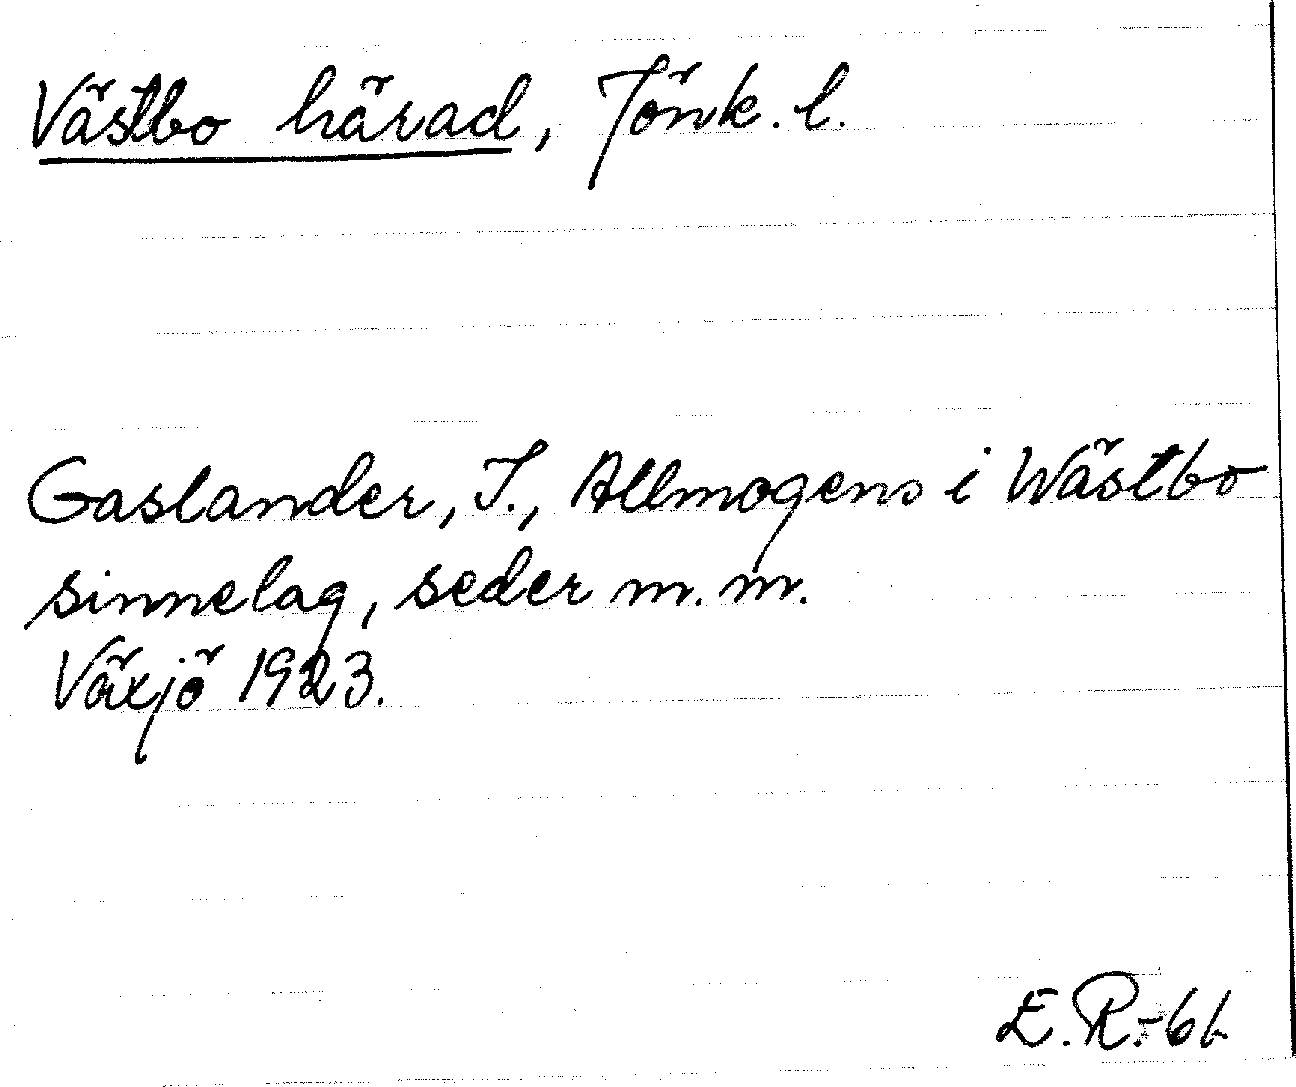 Västbo härad, Jönk. l.
Gaslander, J., Allmogens i Wästbo
sinnelag, seder m. m.
Växjö 1923.
E. R.